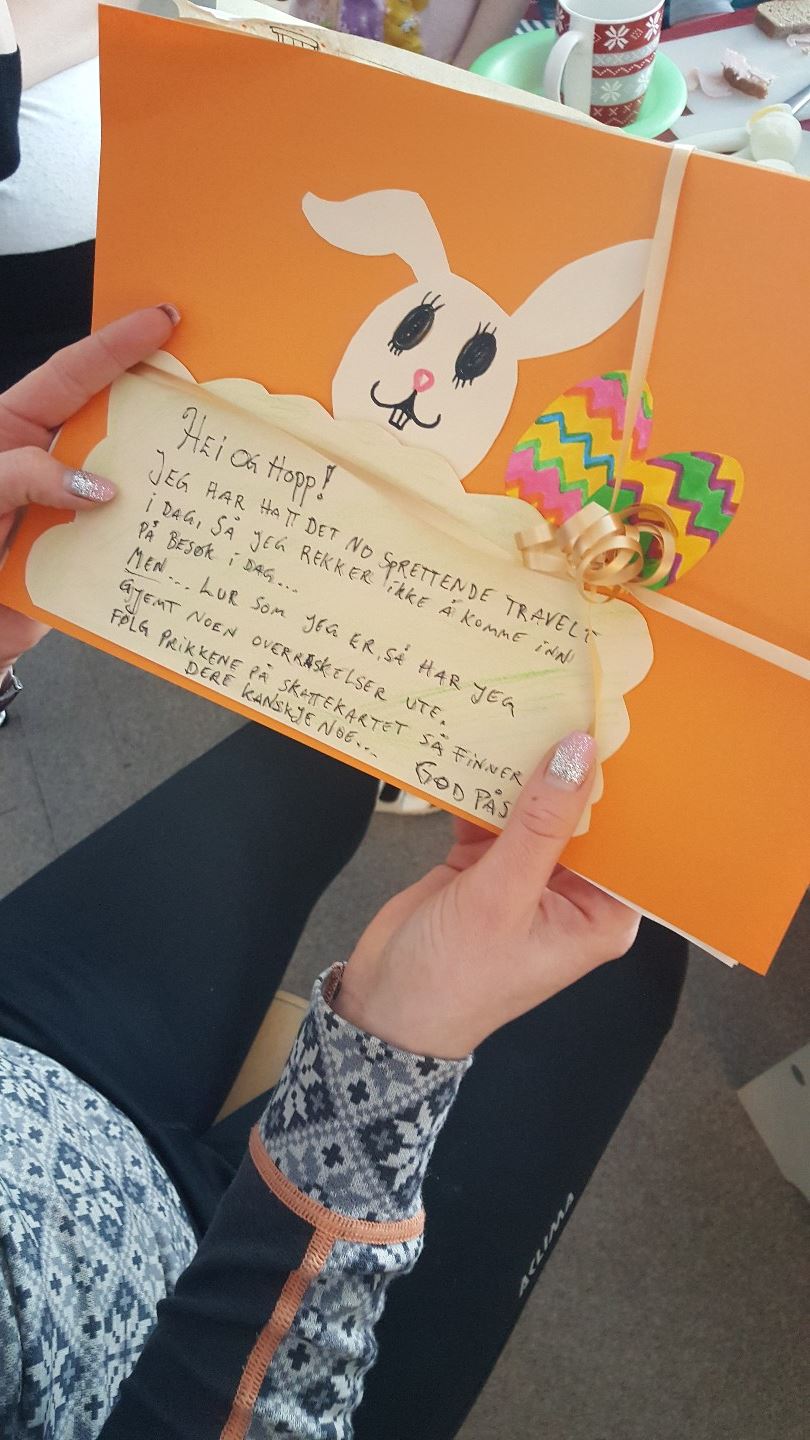 Hei og Hopp!
JEG HAR HATT DET NO SPRETTENDE TRAVELT
i DAG, SÅ JEG REKKER iKKE Å KOMME iNN
PÅ BESØK i DAG...
MEN... LUR SOM JEG ER, SÅ HAR JEG
GJEMT NOEN OVERRASKELSER UTE.
FØLG PRiKKENE PÅ SKATTEKARTET SÅ FiNNER
DERE KANSKJE NOE...
GOD PÅS
ACLIMA